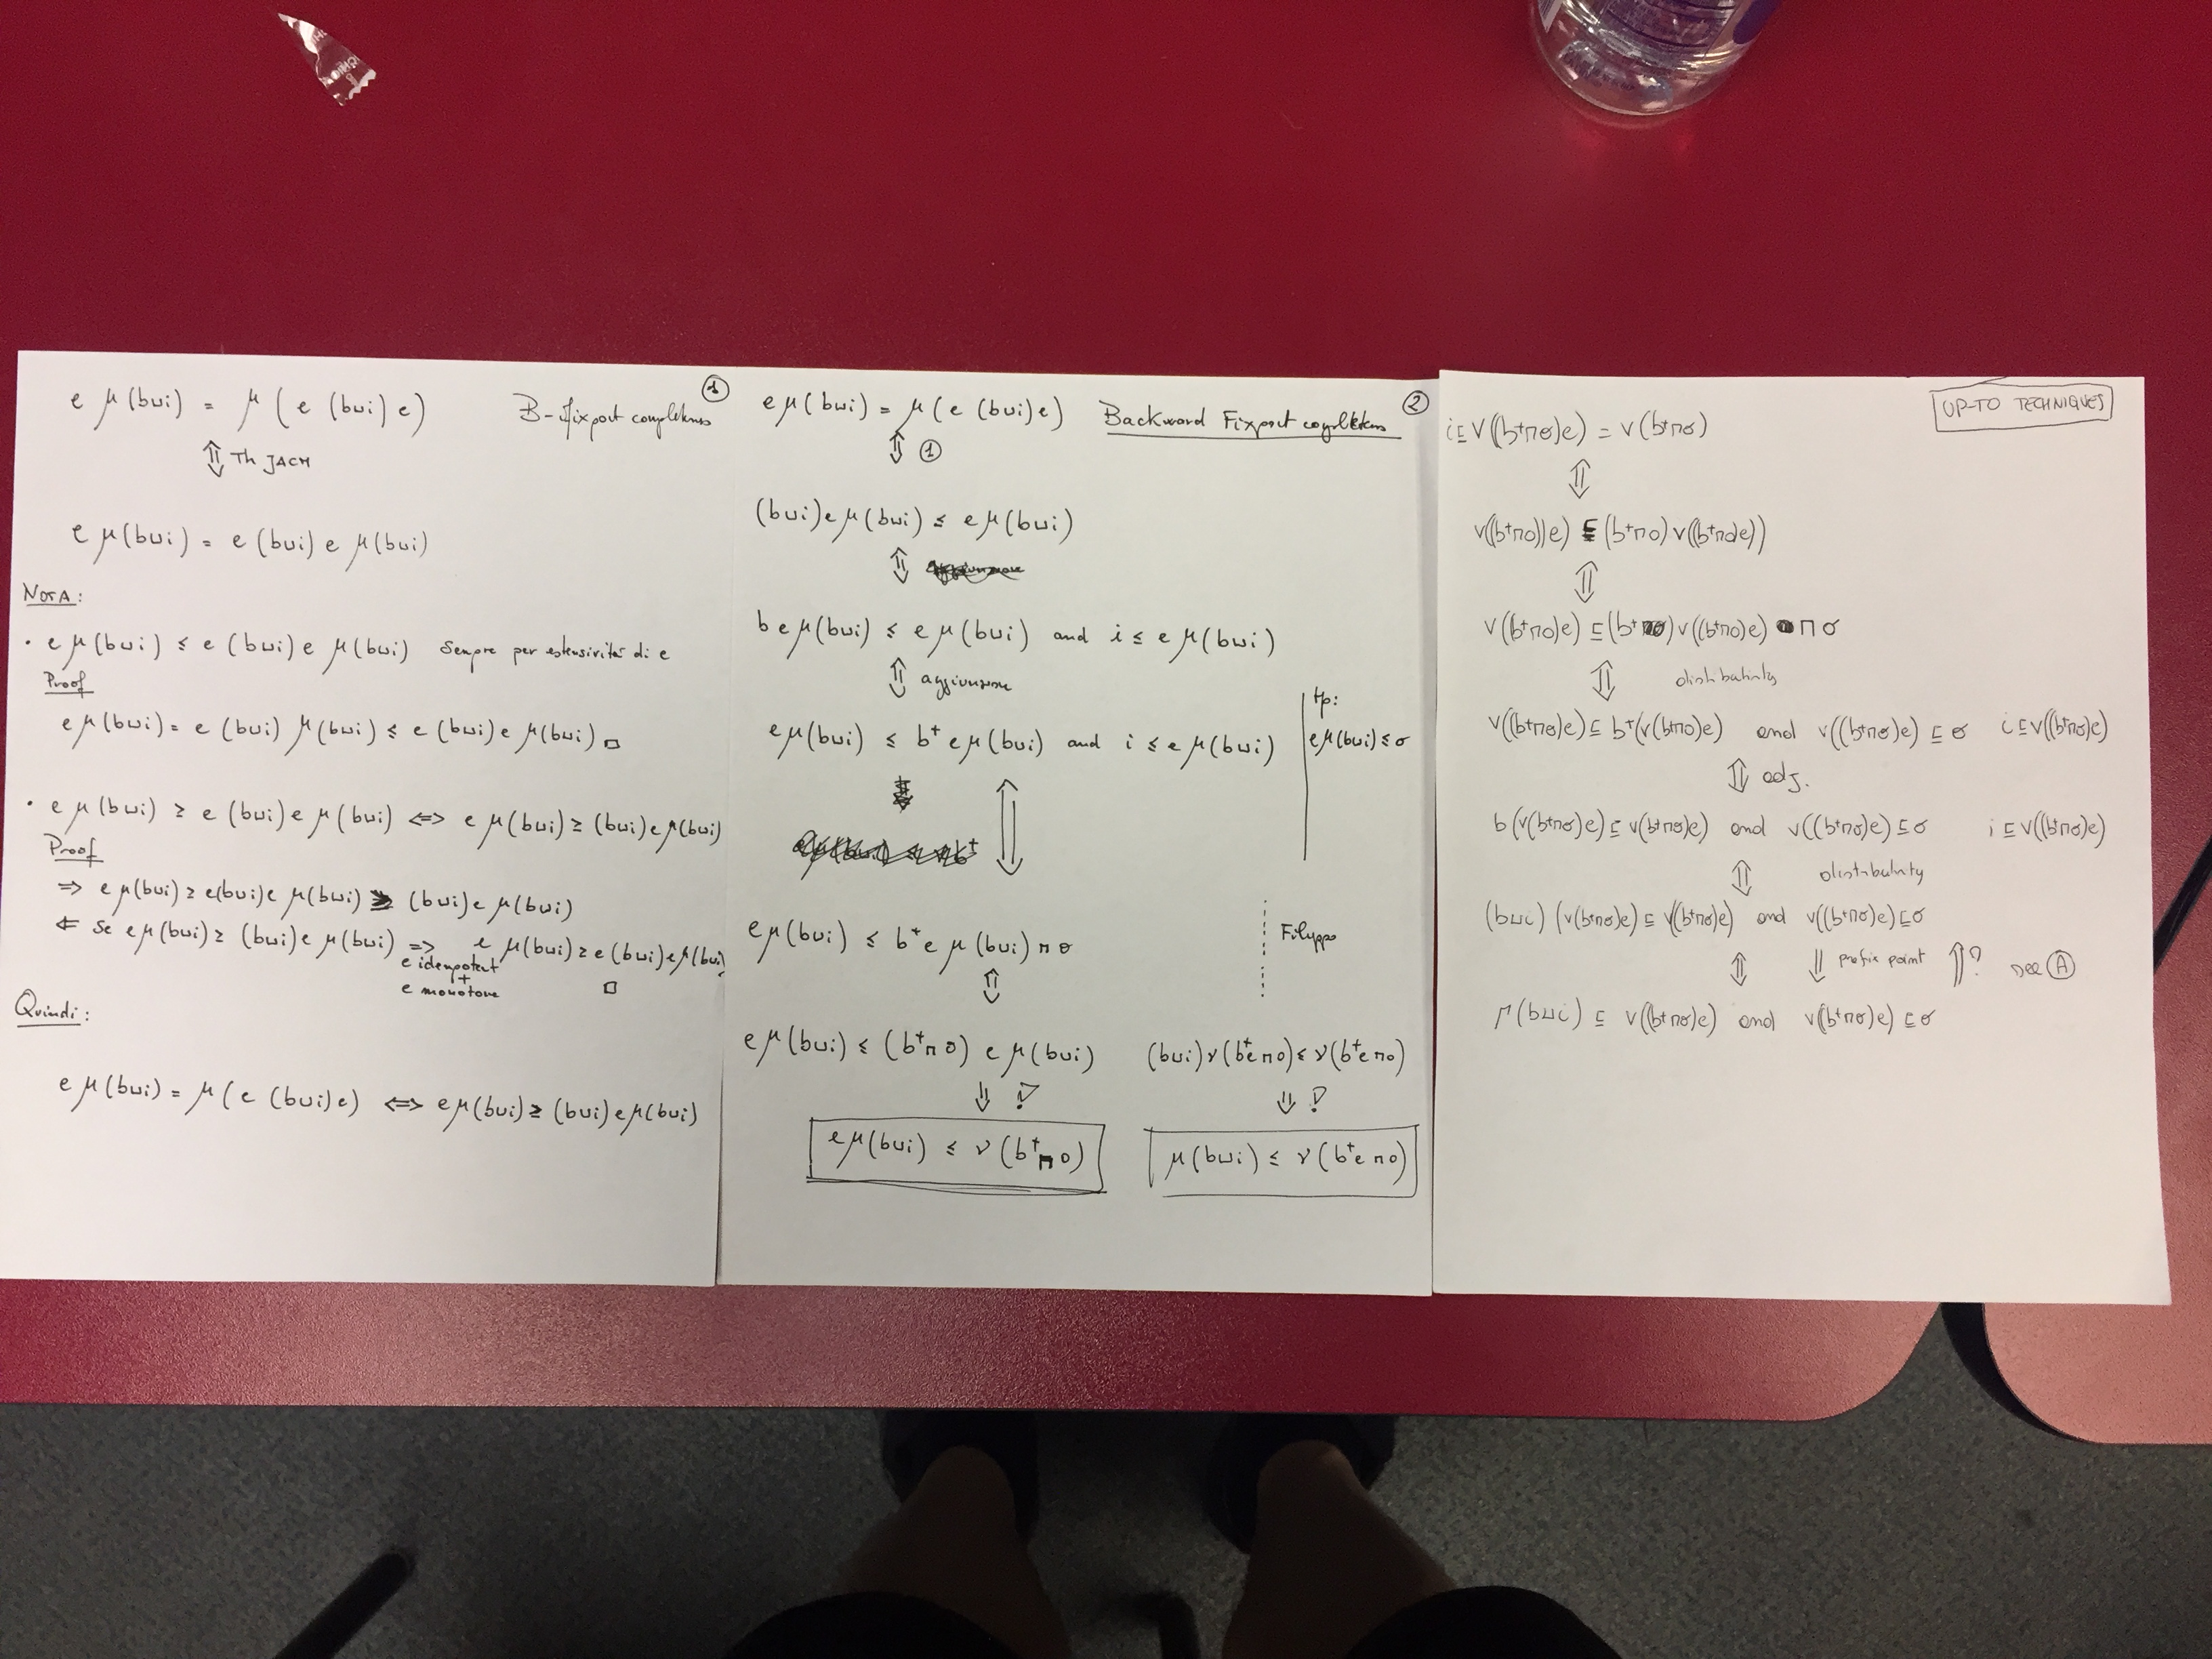 e μ(b⊔i) = μ(e (b⊔i) e)
B-Fixpoint completeness
①
⇕ Th JACM
e μ(b⊔i) = e (b⊔i) e μ(b⊔i)
NOTA:
• e μ(b⊔i) ≤ e (b⊔i) e μ(b⊔i) Sempre per estensività di e
Proof
e μ(b⊔i) = e (b⊔i) μ(b⊔i) ≤ e (b⊔i) e μ(b⊔i) □
• e μ(b⊔i) ≥ e (b⊔i) e μ(b⊔i) ⇔ e μ(b⊔i) ≥ (b⊔i) e μ(b⊔i)
Proof
⇒ e μ(b⊔i) ≥ e(b⊔i)e μ(b⊔i) ≥ (b⊔i) e μ(b⊔i)
⇐ Se e μ(b⊔i) ≥ (b⊔i) e μ(b⊔i) ⇒ e μ(b⊔i) ≥ e (b⊔i) e μ(b⊔i)
e idempotent
+
e monotone
□
Quindi:
e μ(b⊔i) = μ(e (b⊔i) e) ⇔ e μ(b⊔i) ≥ (b⊔i) e μ(b⊔i)
e μ(b⊔i) = μ(e (b⊔i) e) Backward Fixpoint completeness
②
⇕ ①
(b⊔i) e μ(b⊔i) ≤ e μ(b⊔i)
⇕
b e μ(b⊔i) ≤ e μ(b⊔i) and i ≤ e μ(b⊔i)
⇕ aggiunzione
e μ(b⊔i) ≤ b⁺ e μ(b⊔i) and i ≤ e μ(b⊔i)
Hp:
e μ(b⊔i) ≤ σ
⇕
e μ(b⊔i) ≤ b⁺ e μ(b⊔i) ⊓ σ
Filippo
⇕
e μ(b⊔i) ≤ (b⁺⊓σ) e μ(b⊔i)
(b⊔i) ν(b⁺e⊓σ) ≤ ν(b⁺e⊓σ)
⇓ ?
⇓ ?
e μ(b⊔i) ≤ ν(b⁺⊓σ)
μ(b⊔i) ≤ ν(b⁺e⊓σ)
UP-TO TECHNIQUES
i ⊑ ν((b⁺⊓σ)e) = ν(b⁺⊓σ)
⇕
ν((b⁺⊓σ))e) ⊑ (b⁺⊓σ) ν((b⁺⊓σ)e))
⇕
ν((b⁺⊓σ)e) ⊑ (b⁺) ν((b⁺⊓σ)e) ⊓ σ
⇕ distributivity
ν((b⁺⊓σ)e) ⊑ b⁺(ν(b⁺⊓σ)e) and ν((b⁺⊓σ)e) ⊑ σ i ⊑ ν((b⁺⊓σ)e)
⇕ adj.
b (ν(b⁺⊓σ)e) ⊑ ν(b⁺⊓σ)e) and ν((b⁺⊓σ)e) ⊑ σ i ⊑ ν((b⁺⊓σ)e)
⇕ distributivity
(b⊔i) (ν(b⁺⊓σ)e) ⊑ ν((b⁺⊓σ)e) and ν((b⁺⊓σ)e) ⊑ σ
⇕ ⇓ prefix point ⇑? see Ⓐ
μ(b⊔i) ⊑ ν((b⁺⊓σ)e) and ν((b⁺⊓σ)e) ⊑ σ